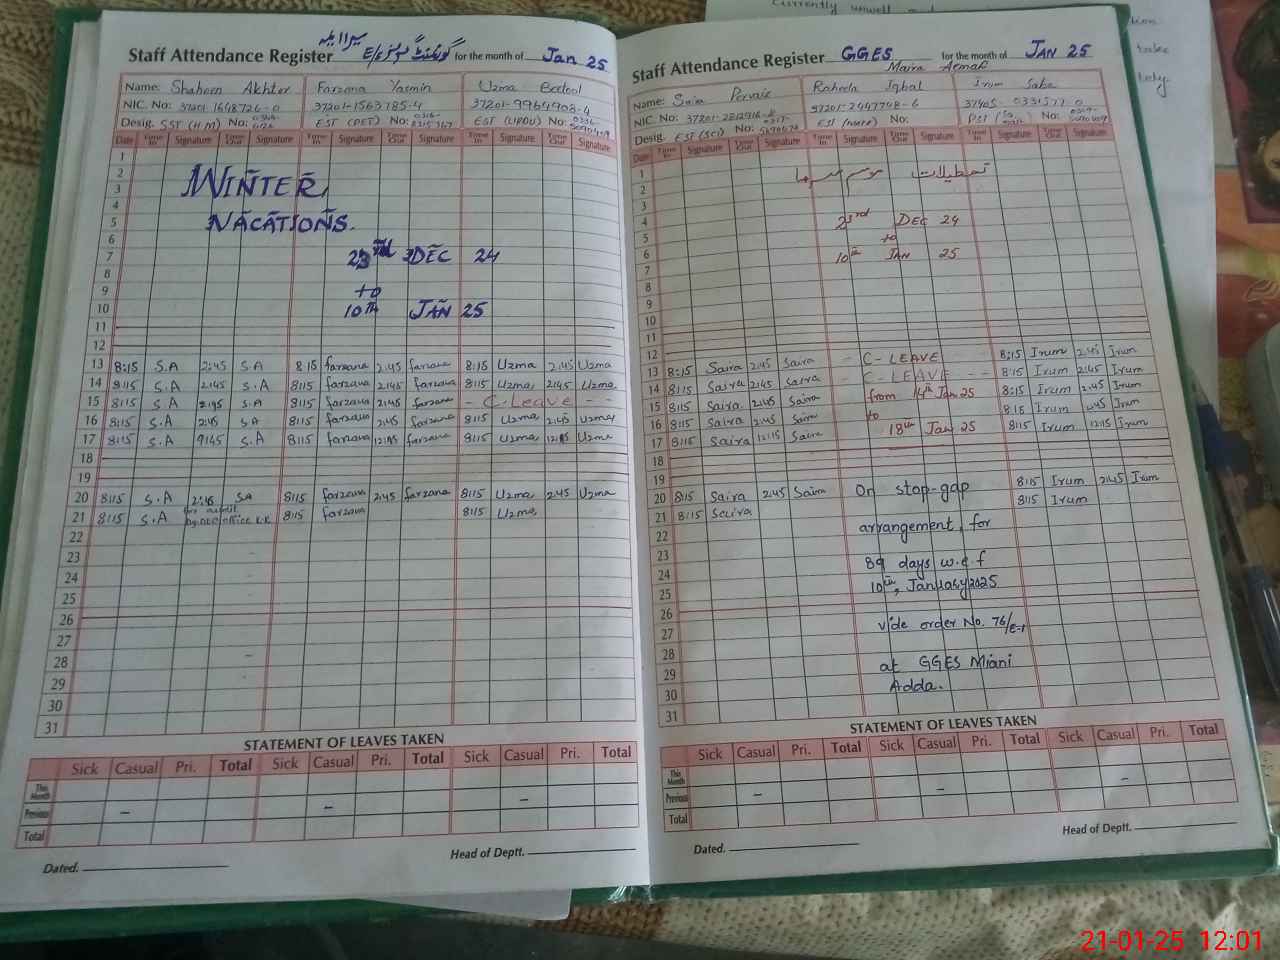 Currently unwell and
Staff Attendance Register for the month of Jan 25
Name: Shaheen Akhter Farzana Yasmin Uzma Batool
NIC. No: 37201-1648726-0 37201-1563785-4 37201-9964908-4
Desig. SST (HM) No: EST (PET) No: EST (URDU) No:
Date Time In Signature Time Out Signature Time In Signature Time Out Signature Time In Signature Time Out Signature
1
2 WINTER
3
4
5 VACATIONS.
6
7 23rd DEC 24
8
9 to
10 10TH JAN 25
11
12
13 8:15 S.A 2:45 S.A 8:15 farzana 2:45 farzana 8:15 Uzma 2:45 Uzma
14 8:15 S.A 2:45 S.A 8:15 farzana 2:45 farzana 8:15 Uzma 2:45 Uzma
15 8:15 S.A 2:45 S.A 8:15 farzana 2:45 farzana - C-Leave - -
16 8:15 S.A 2:45 S.A 8:15 farzana 2:45 farzana 8:15 Uzma 2:45 Uzma
17 8:15 S.A S.A 8:15 farzana 12:15 farzana 8:15 Uzma 12:15 Uzma
18
19
20 8:15 S.A 2:45 S.A 8:15 farzana 2:45 farzana 8:15 Uzma 2:45 Uzma
21 8:15 S.A for audit office 8:15 farzana 8:15 Uzma
22
23
24
25
26
27
28
29
30
31
STATEMENT OF LEAVES TAKEN
Sick Casual Pri. Total Sick Casual Pri. Total Sick Casual Pri. Total
This Month
Previous - - -
Total
Dated. Head of Deptt.
Staff Attendance Register GGES for the month of JAN 25
Maira
Name: Saira Pervaiz Raheela Iqbal Irum Saba
NIC. No: 37201-2812916-8 37201-2497748-6 37405-0331577-0
Desig. EST (Sci) No: EST (Math) No: PST No:
Date Time In Signature Time Out Signature Time In Signature Time Out Signature Time In Signature Time Out Signature
1 تعطیلات موسم سرما
2
3
4 23rd DEC 24
5 to
6 10th JAN 25
7
8
9
10
11
12
13 8:15 Saira 2:45 Saira - C-LEAVE - - 8:15 Irum 2:45 Irum
14 8:15 Saira 2:45 Saira - C-LEAVE - - 8:15 Irum 2:45 Irum
15 8:15 Saira 2:45 Saira from 14th Jan 25 8:15 Irum 2:45 Irum
16 8:15 Saira 2:45 Saira to 8:15 Irum 2:45 Irum
17 8:15 Saira 12:15 Saira 18th Jan 25 8:15 Irum 12:15 Irum
18
19
20 8:15 Saira 2:45 Saira On stop-gap 8:15 Irum 2:45 Irum
21 8:15 Saira 8:15 Irum
22 arrangement, for
23
24 89 days w.e.f
25 10th, January 2025
26
27 vide order No. 76/E-I
28
29 at GGES Miani
30 Adda.
31
STATEMENT OF LEAVES TAKEN
Sick Casual Pri. Total Sick Casual Pri. Total Sick Casual Pri. Total
This Month
Previous - - -
Total
Dated. Head of Deptt.
21-01-25 12:01